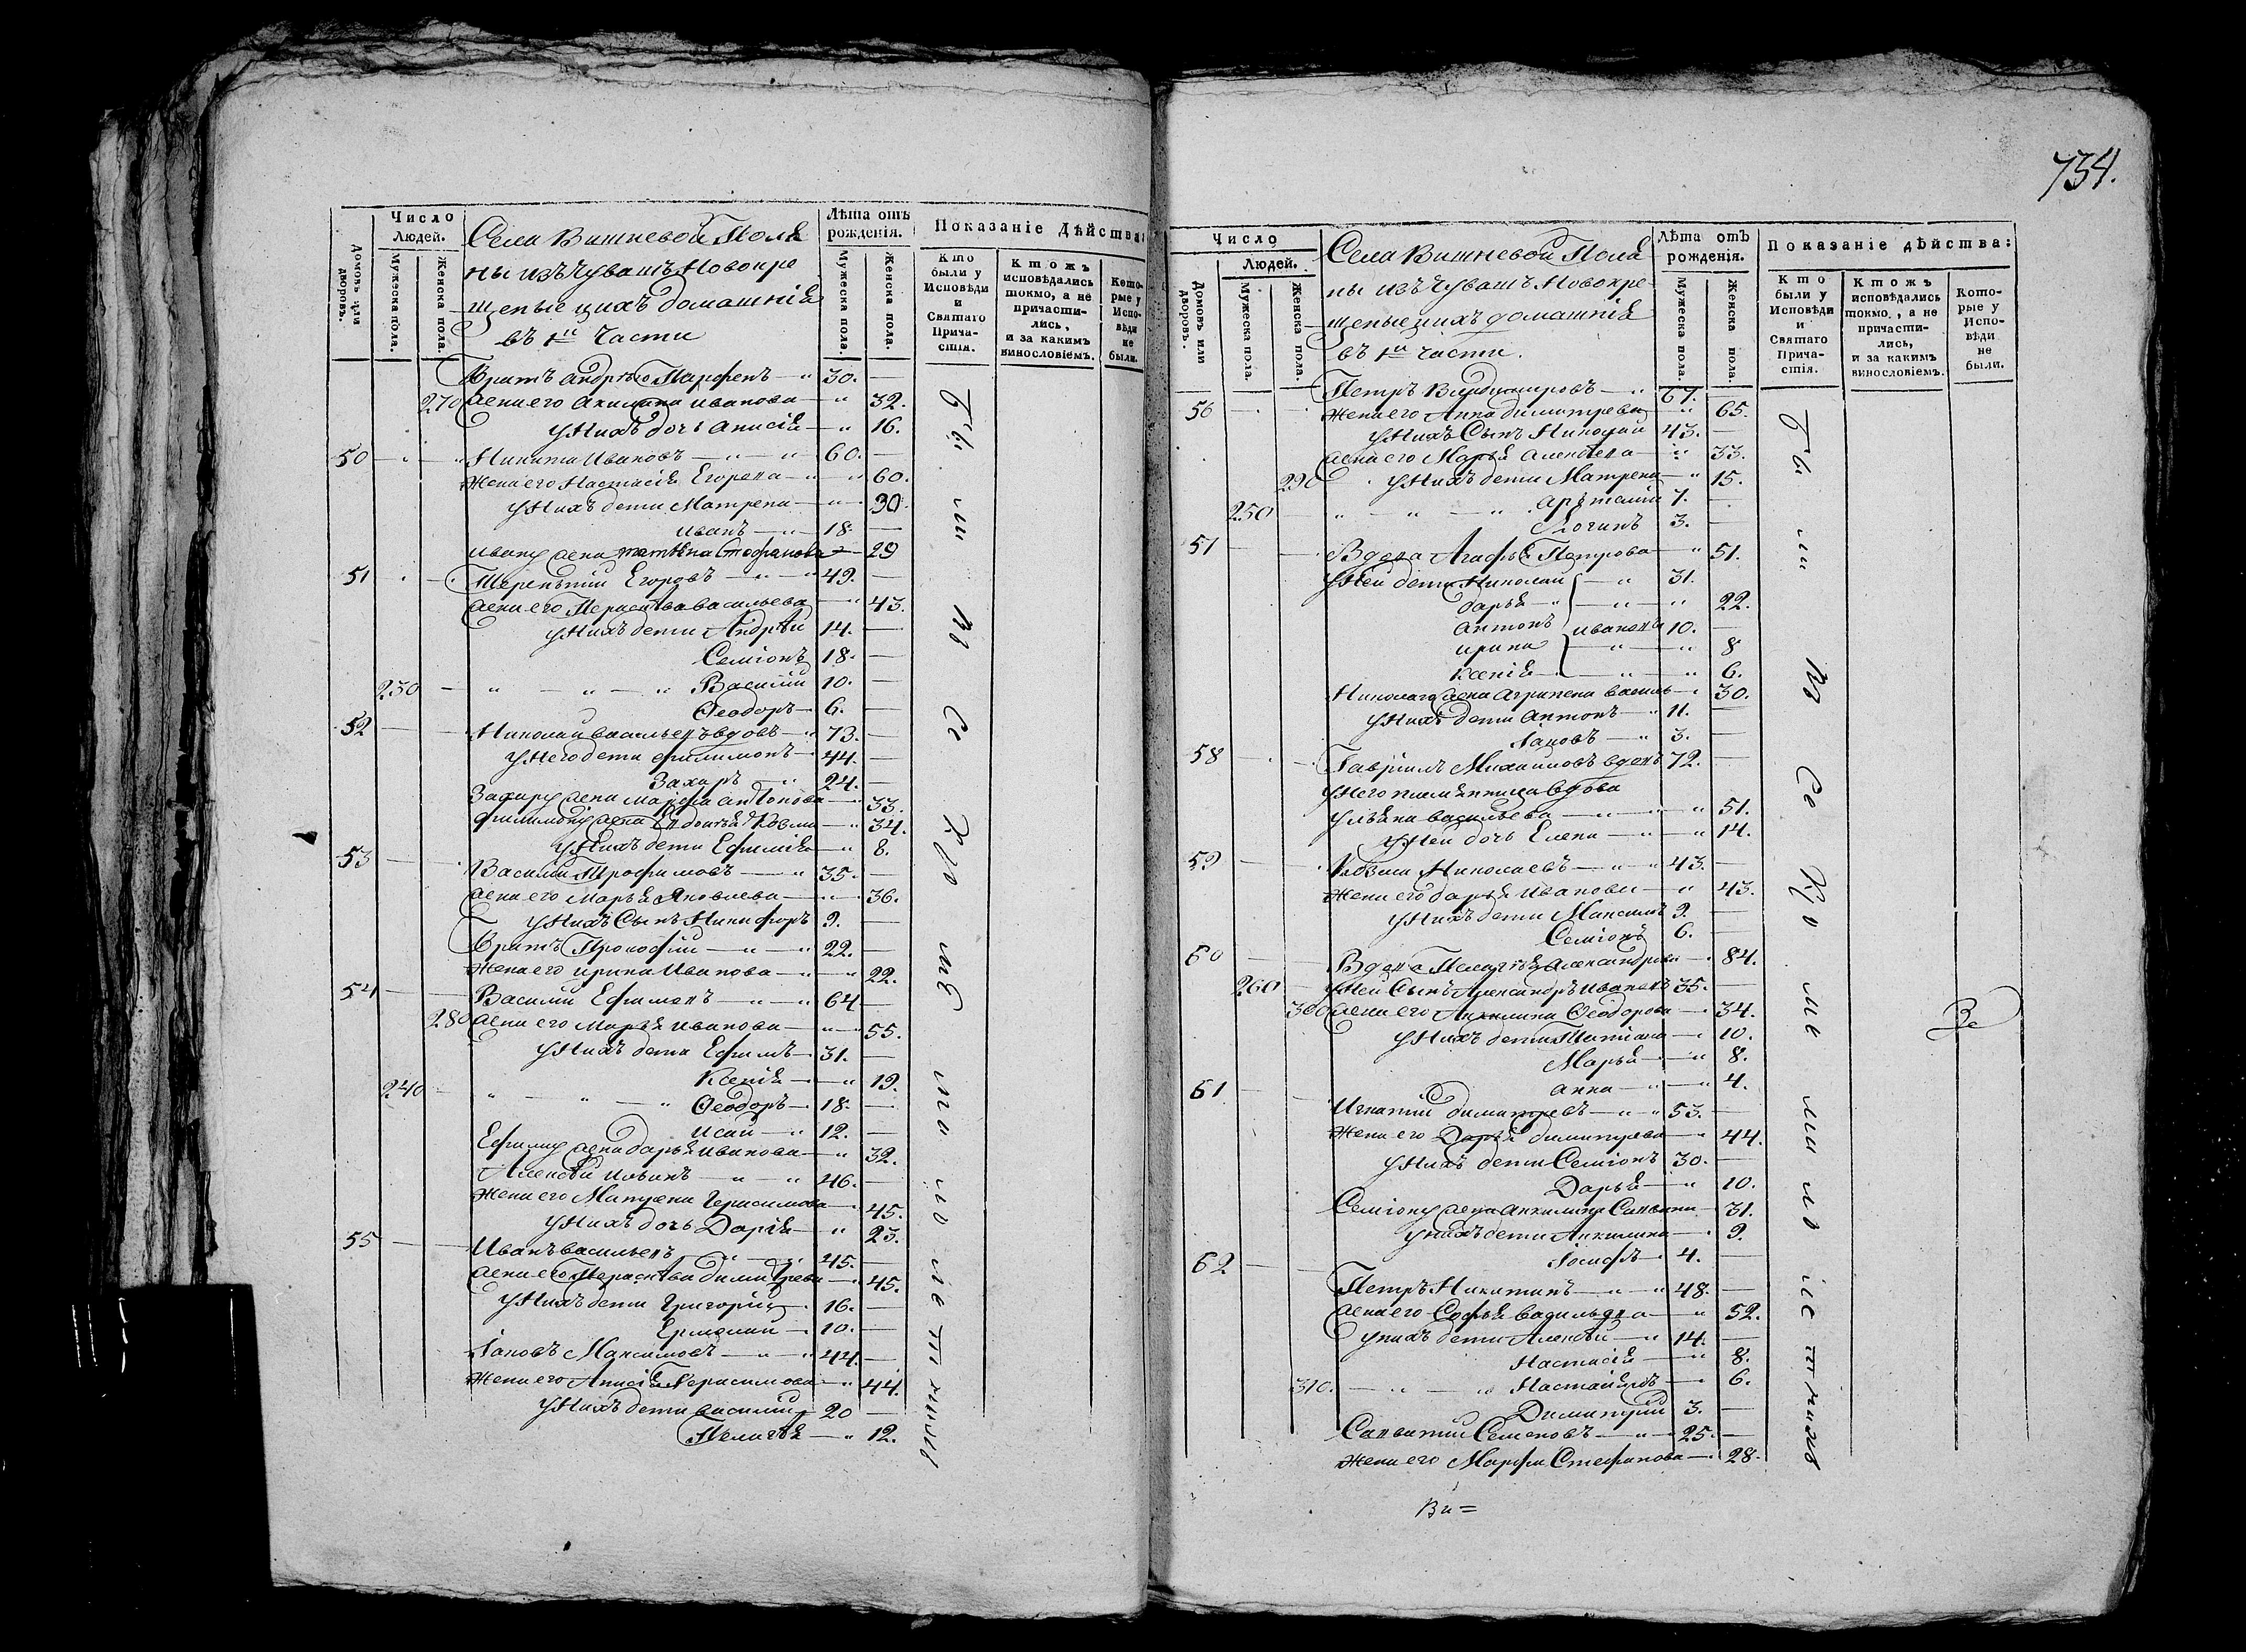 Число Людей.
Лѣта отъ рожденія.
Показаніе Дѣйства:
Домовъ или дворовъ.
Мужеска пола.
Женска пола.
Села Вишневой Поля
ны изъ Чувашъ Новокре
щеные ихъ домашнія
въ 1й Части
Мужеска пола.
Женска пола.
Кто были у Исповѣди и Святаго Причастія.
Ктожъ исповѣдались токмо, а не причастились, и за какимъ винословіемъ.
Которые у Исповѣди не были.
Братъ Андрѣю Парфенъ 30.
270 Жена его Акилина Иванова 32.
у Нихъ дочь Анисія 16.
50 Никита Ивановъ 60.
Жена его Настасія Егорева 60.
у Нихъ дети Матрена 30.
Иванъ 18.
Ивану жена Стефанова 29
51 Терентій Егоровъ 49.
Жена его Параскѣва Васильева 43.
у Нихъ дети Андрѣй 14.
Семіонъ 18.
230 Василій 10.
Ѳеодоръ 6.
52 Николай Васильевъ вдовъ 73.
у Него дети Филимонъ 44.
Захаръ 24.
Захару жена Марфа Антонова 33.
Филимону жена Евдокѣя Козми 34.
у Нихъ дети Ефимія 8.
53 Василій Трофимовъ 35.
Жена его Марья Яковлева 36.
у Нихъ Сынъ Никифоръ 9.
Братъ Прокофій 22.
Жена его Ирина Иванова 22.
54 Василій Ефимовъ 64
280 Жена его Марья Иванова 55.
у Нихъ дети Ефимъ 31.
Ксенія 19.
240 Ѳеодоръ 18.
Исай 12.
Ефиму жена Дарья Иванова 32.
Алексѣй Ильинъ 46.
Жена его Герасимова 45.
у Нихъ дочь Дарія 23.
55 Иванъ Васильевъ 45.
Жена его Параскѣва Димитрева 45.
у Нихъ дети Григорій 16.
Ермолай 10.
Іаковъ Максимовъ 44.
Жена его Анисія Герасимова 44.
у Нихъ дети Василий 20
Пелагѣя 12.
Бы ли Вс
734.
Число Людей.
Лѣта отъ рожденія.
Показаніе дѣйства:
Домовъ или дворовъ.
Мужеска пола.
Женска пола.
Села Вишневой Поля
ны изъ Чувашъ Новокре
щеные ихъ домашнія
въ 1й части.
Мужеска пола.
Женска пола.
Кто были у Исповѣди и Святаго Причастія.
Ктожъ исповѣдались токмо, а не причастились, и за какимъ винословіемъ.
Которые у Исповѣди не были.
56 Петръ Владимировъ 67.
Жена его Анна Димитрева 65.
у Нихъ Сынъ Николай 43.
Жена его Марья Алексѣева 33.
290 у Нихъ дети Матрена 15.
250 7.
Логинъ 3.
51 Вдова Агафья Петрова 51.
у Ней дети Николай 31.
Дарья 22.
Антонъ Ивановы 10.
Ирина 8
Ксенія 6.
Николаю жена Агрипена Василь 30.
у Нихъ дети Антонъ 11.
Іаковъ 3.
58 Гавріилъ Михайловъ вдовъ 72.
у Него племянница вдова
Улѣяна Васильева 51.
у Ней дочь Елена 14.
59 Козма Николаевъ 43.
Жена его Дарья Иванова 43.
у Нихъ дети Максимъ 9.
Семіонъ 6.
60 Вдова Пелагѣя Александрова 84.
260 у Ней Сынъ Александръ Ивановъ 35.
300 Жена его Акилина Ѳеодорова 34.
у Нихъ дети Татіана 10.
Марья 8.
Анна 4.
61 Игнатій Димитревъ 53.
Жена его Дарья Димитрева 44.
у Нихъ дети Семіонъ 30.
Дарья 10.
Семіону жена Акилина 31.
у нихъ дети Акилина 9.
Іосифъ 4.
62 Петръ Никитинъ 48.
Жена его Софья Васильева 52.
у нихъ дети Алексѣй 14.
Настасія 8.
310. 6.
Димитрий 3.
Савватий Семеновъ 25.
Жена его Марфа Стефанова 28.
Бы ли Вс Кро мѣ ма лѣ т
Ви=